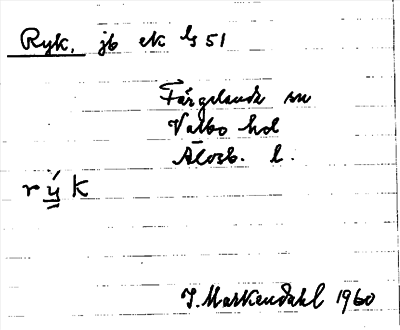 Ryk, jb ek ls 51
Färgelanda sn
Valbo hd
Älvsb. l.
r ý k
J. Markendahl 1960